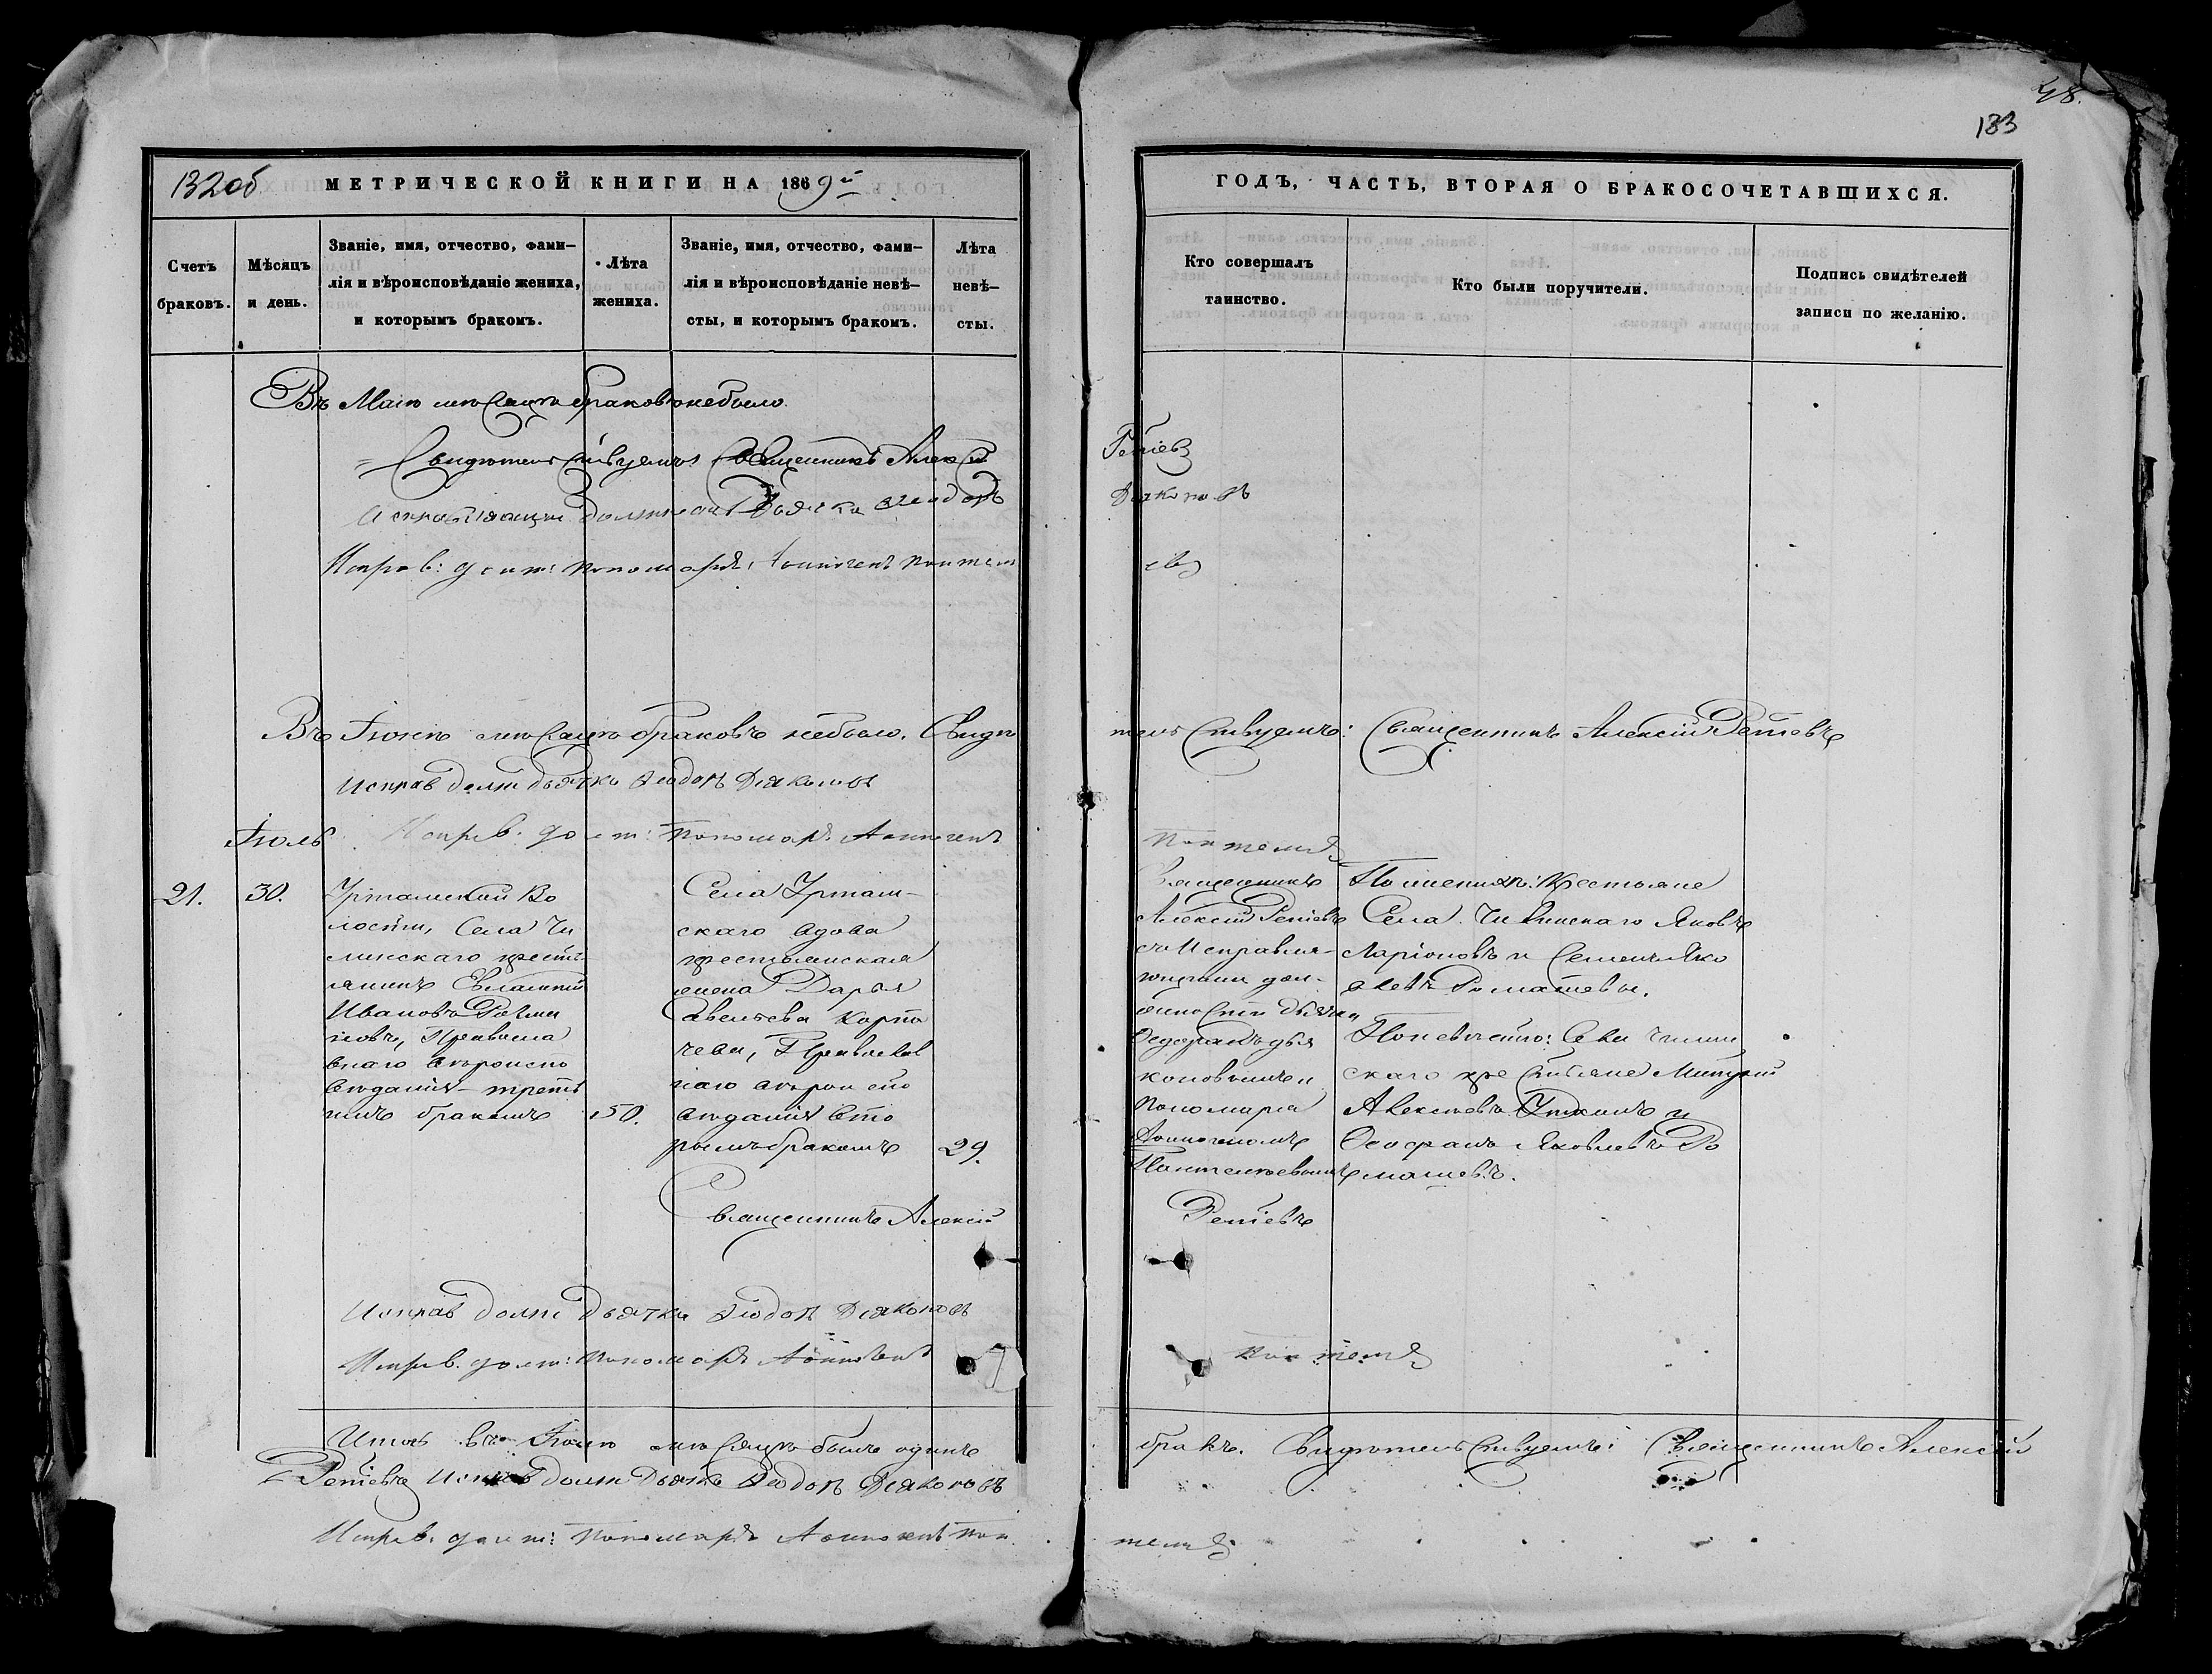 48.
133
132 об
МЕТРИЧЕСКОЙ КНИГИ НА 1869й
ГОДЪ, ЧАСТЬ, ВТОРАЯ О БРАКОСОЧЕТАВШИХСЯ.
Счетъ
браковъ.
Мѣсяцъ
и день.
Званіе, имя, отчество, фами-
лія и вѣроисповѣданіе жениха,
и которымъ бракомъ.
Лѣта
жениха.
Званіе, имя, отчество, фами-
лія и вѣроисповѣданіе невѣ-
сты, и которымъ бракомъ.
Лѣта
невѣ-
сты.
Кто совершалъ
таинство.
Кто были поручители.
Подпись свидѣтелей
записи по желанію.
Въ Маіѣ мѣсяцѣ браковъ небыло.
Свидѣтельствуемъ Священникъ Алексій
Репіевъ
Исправляющій должность Дьячка Ѳеодоръ
Дьяконовъ
Исправ: долж: Пономаря
Въ Іюнѣ мѣсяцѣ браковъ небыло. Свидѣ
тельствуемъ: Священникъ Алексій Репіевъ
Исправ долж дьячка Ѳеодоръ Дьяконовъ
Іюль
Исправ. долж: Пономаря
21.
30.
Уртамской Во
лости, Села Чи
линскаго кресть
янинъ
Ивановъ
новъ, Православ
наго вѣроиспо
вѣданія третьи
имъ бракомъ
50.
Села Уртам-
скаго вдова
крестьянская
жена Дарья
Савельева
чева, Православ
наго вѣроиспо
вѣданія вто
рымъ бракомъ
29.
Священникъ
Алексій Репіевъ
съ Исправля-
ющими дол-
жности дьячка
Ѳедоромъ Дья
коновымъ и
Пономаря
По женихѣ: Крестьяне
Села Чилинскаго Яковъ
Ларіоновъ и Семенъ Яко
влевъ Ромашевы.
По невѣстѣ: Села Чилин
скаго крестьяне
Алексѣевъ и
Яковлевъ Ро
машевъ.
Священникъ Алексій
Репіевъ
Исправ долж Дьячка Ѳеодоръ Дьяконовъ
Исправ. долж: Пономаря
Итого въ Іюлѣ мѣсяцѣ былъ одинъ
бракъ. Свидѣтельствуемъ: Священникъ Алексій
Репіевъ Исправ долж Дьячка Ѳеодоръ Дьяконовъ
Исправ. долж: Пономаря